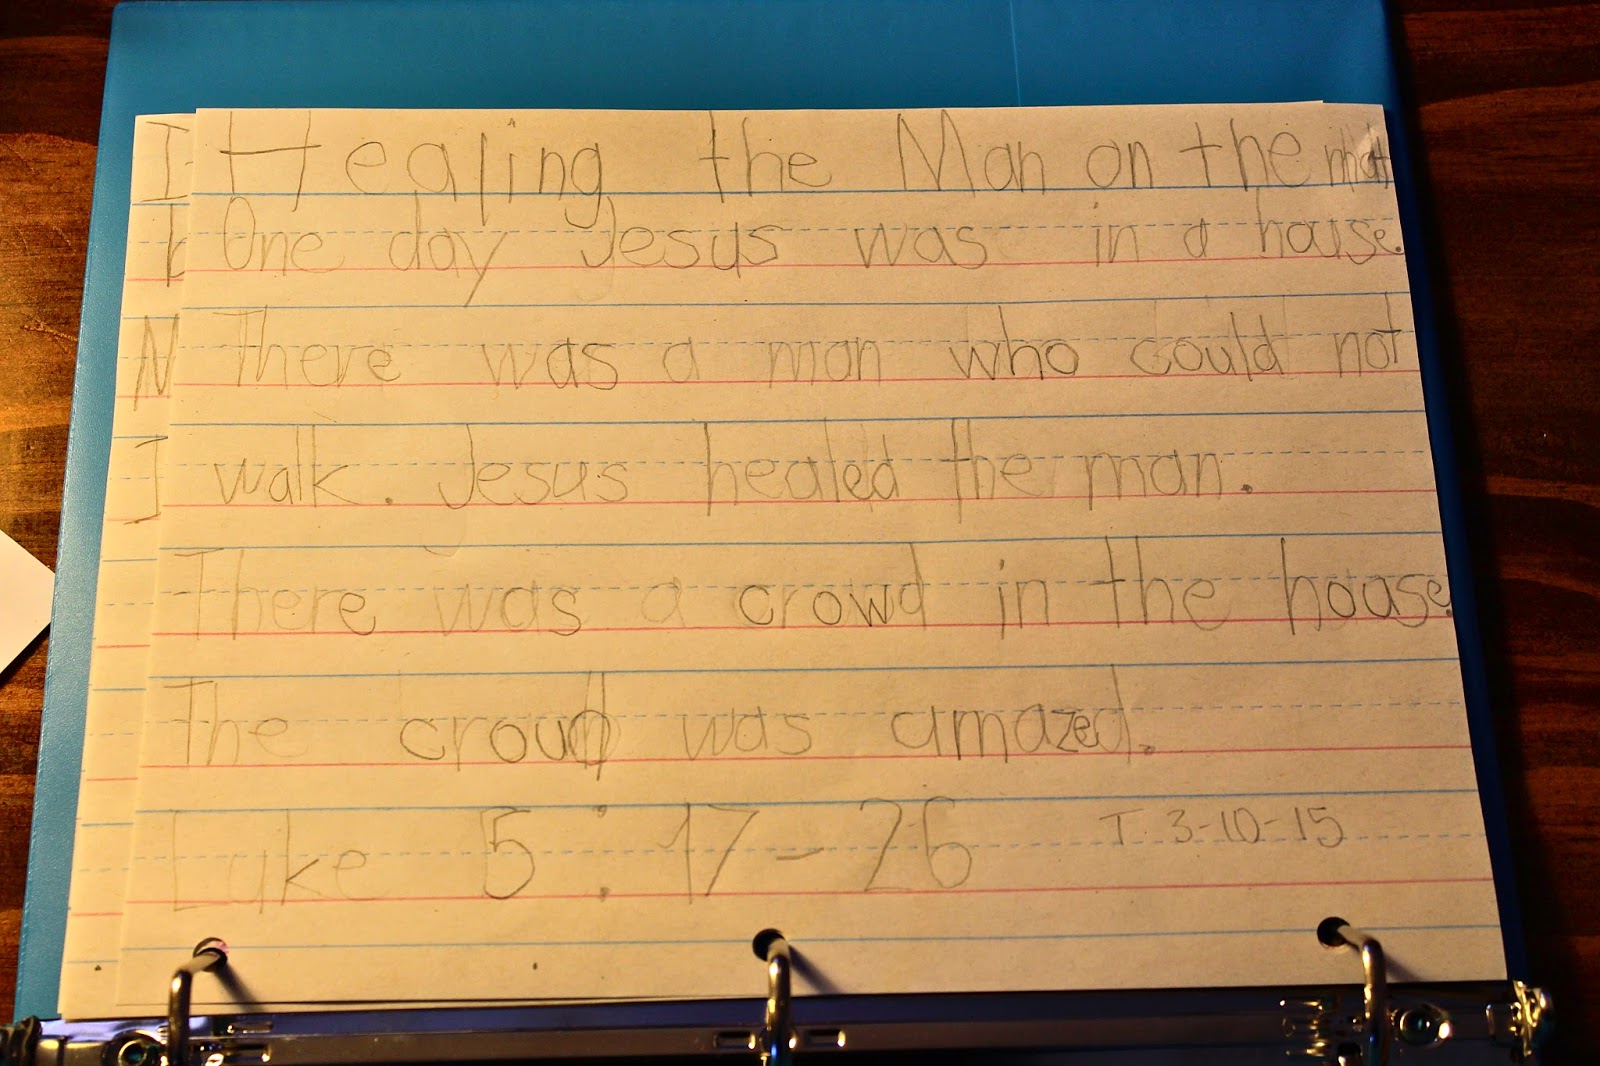 Healing the Man on the mat
One day Jesus was in a house.
There was a man who could not
walk. Jesus healed the man.
There was a crowd in the house.
The croud was amazed.
Luke 5:17-26 T 3-10-15